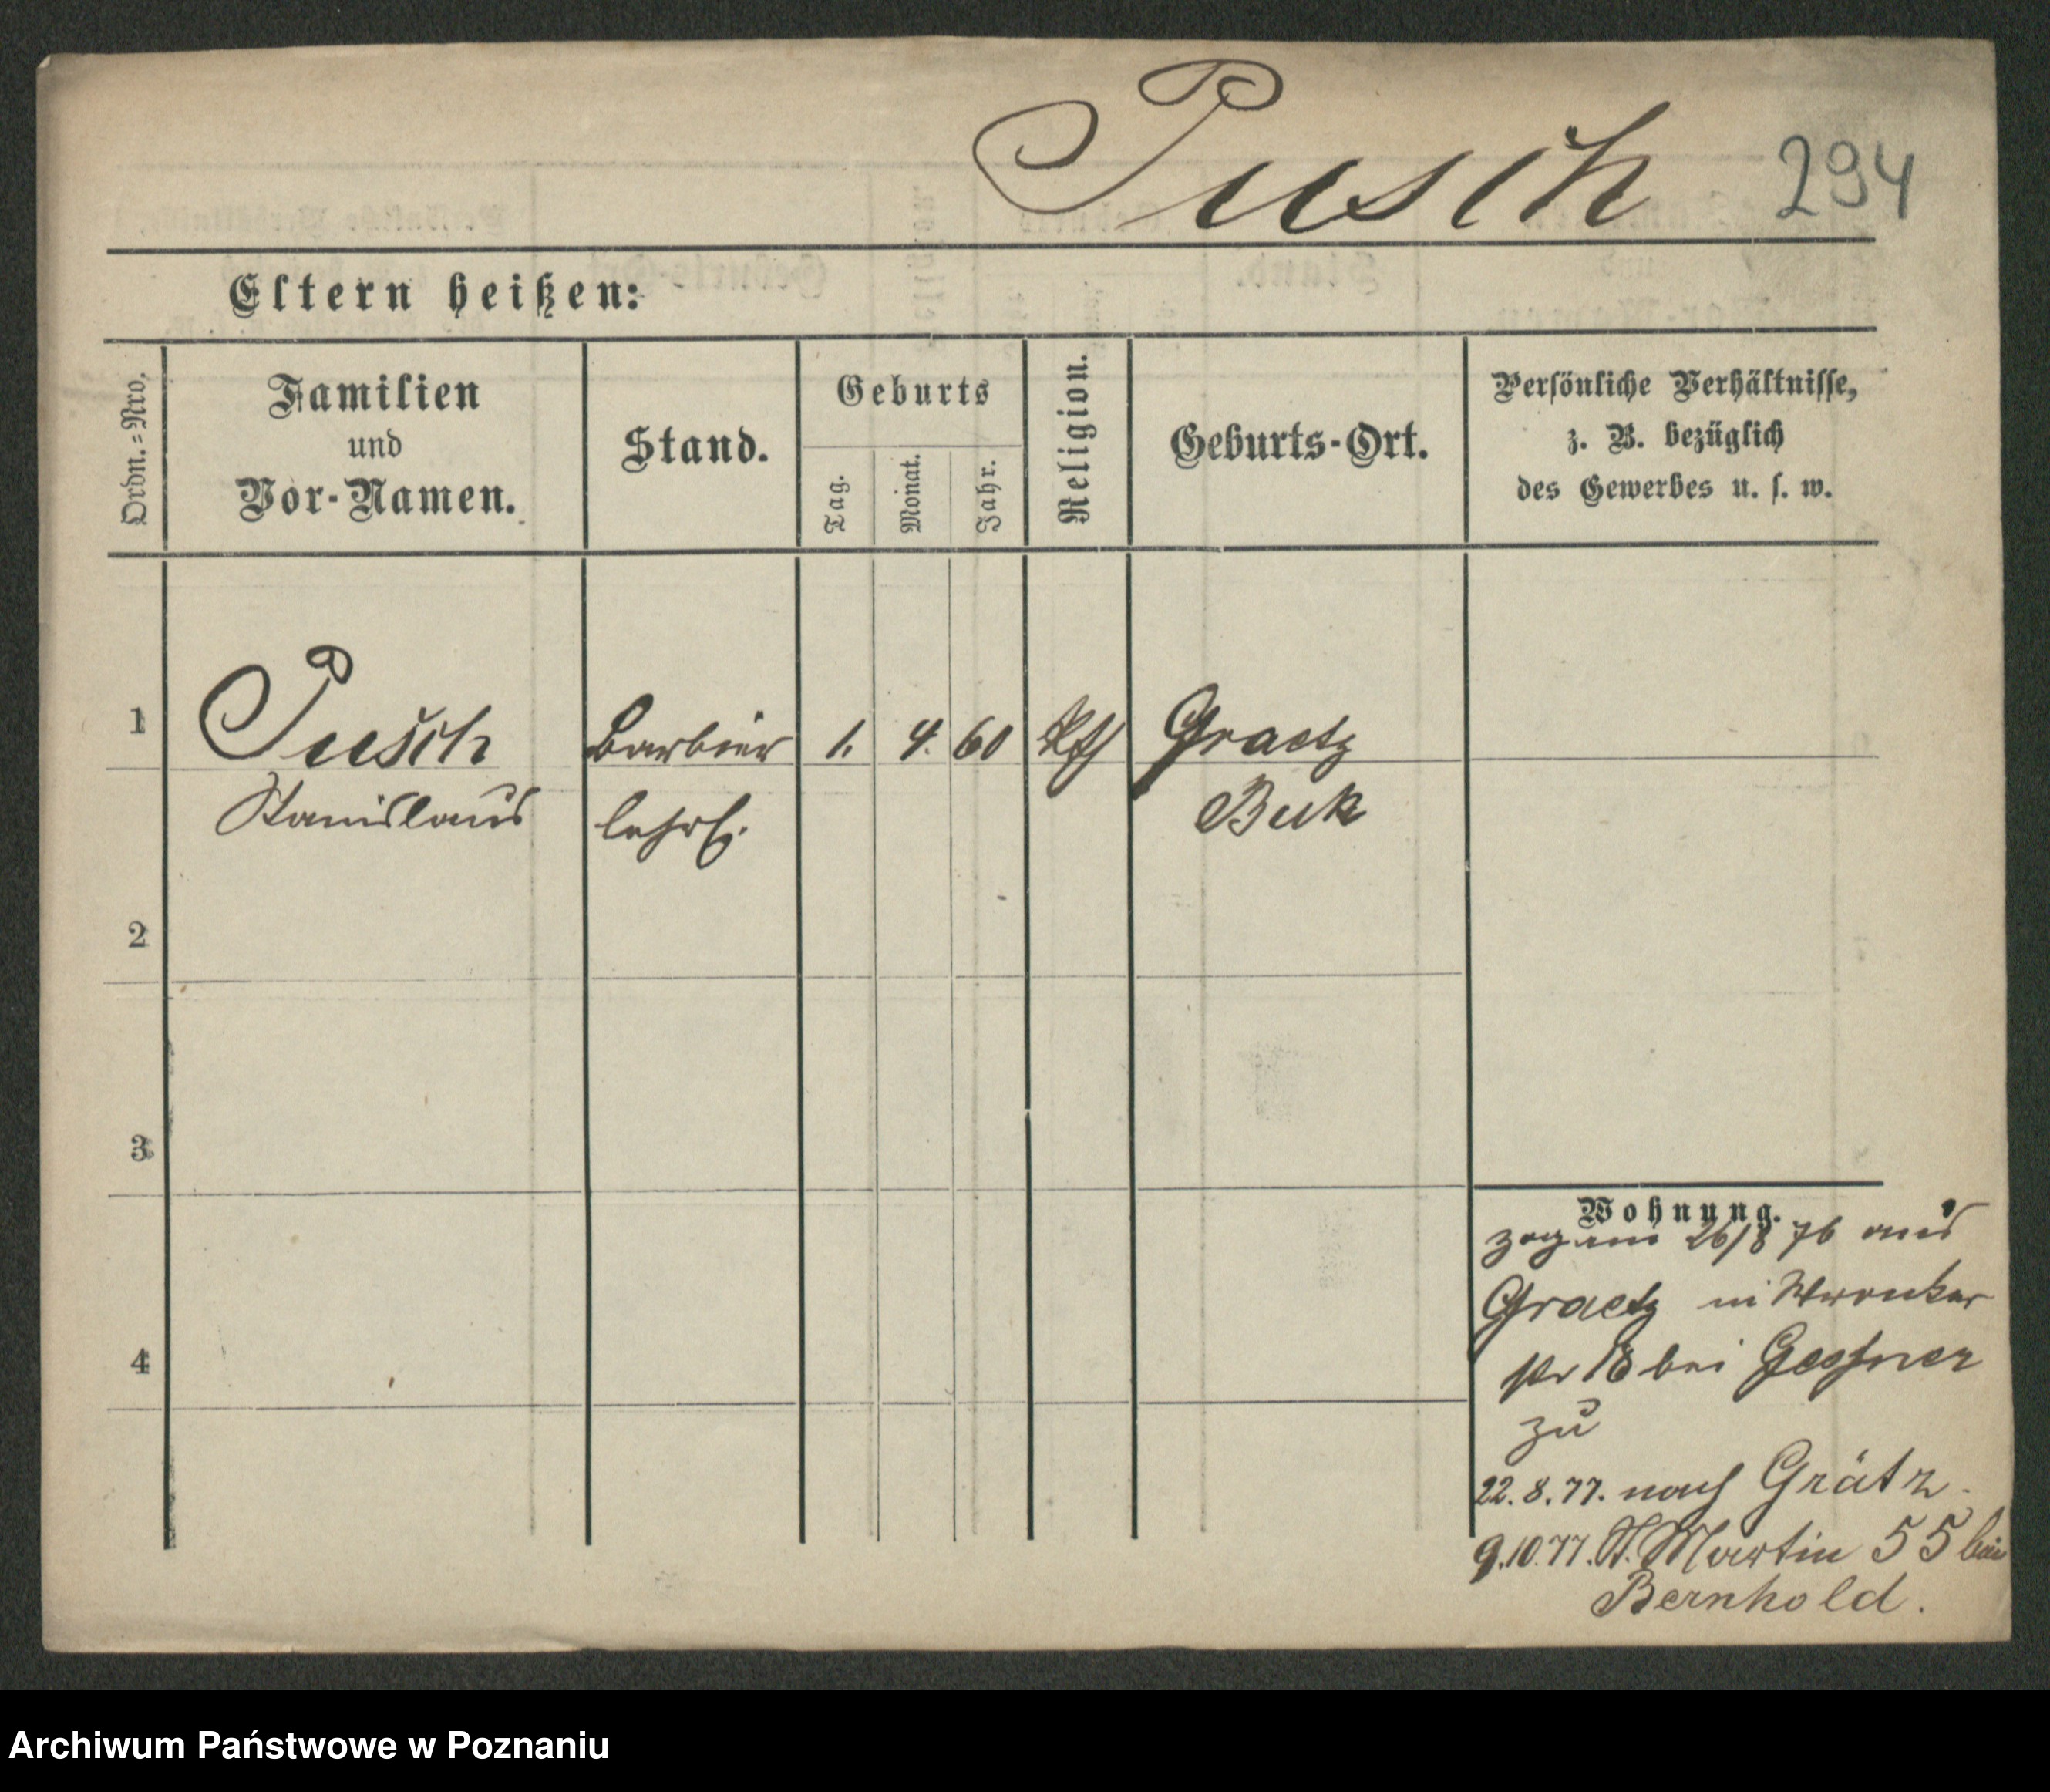 Pusch 294
Eltern heißen:
Ordn.=Nro.
Familien
und
Vor-Namen.
Stand.
Geburts
Tag.
Monat.
Jahr.
Religion.
Geburts-Ort.
Persönliche Verhältnisse,
z. B. bezüglich
des Gewerbes u. s. w.
1 Pusch Barbier 1. 4. 60 kth Graetz
Stanislaus lehrl. Buk
2
3
4
Wohnung.
zog am 26/8 76 aus
Graetz in Wronker
str 18 bei Gessner
zu
22. 8. 77. nach Grätz.
9.10.77. St. Martin 55 bei
Bernhold.
Archiwum Państwowe w Poznaniu